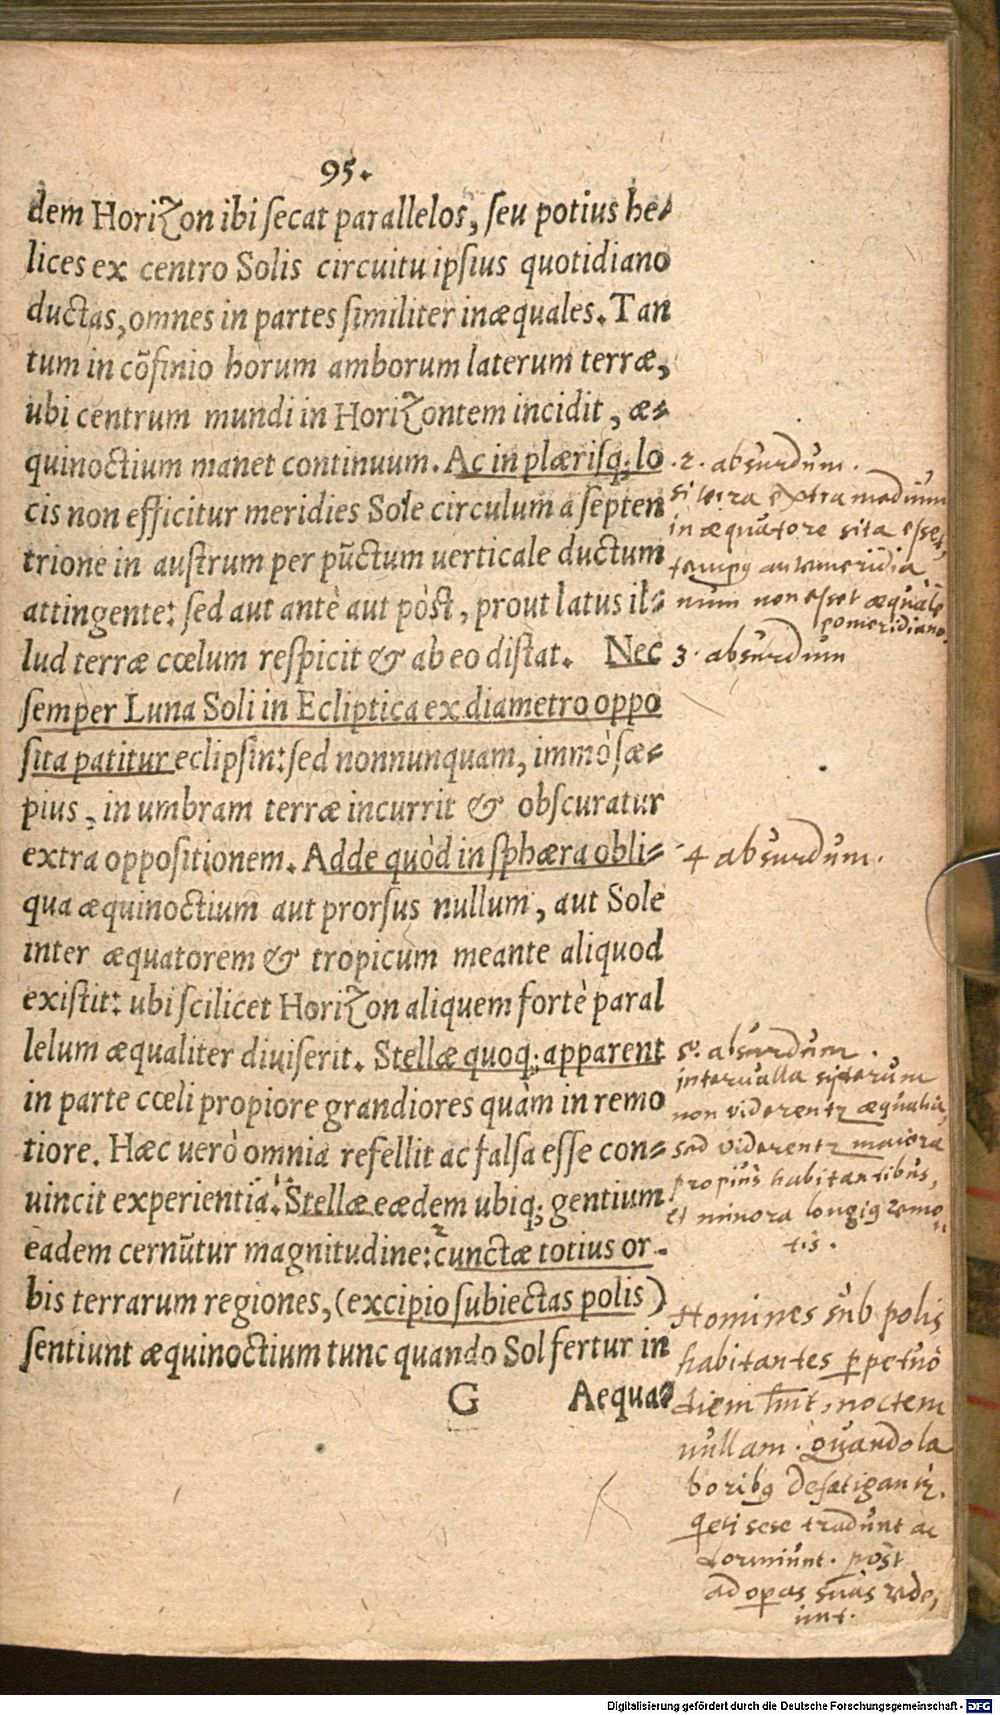 95.
dem Horizon ibi ſecat parallelos, ſeu potius he-
lices ex centro Solis circuitu ipſius quotidiano
ductas, omnes in partes ſimiliter inæquales. Tan
tum in cõfinio horum amborum laterum terræ,
ubi centrum mundi in Horizontem incidit, æ-
quinoctium manet continuum. Ac in plæriſq; lo
cis non efficitur meridies Sole circulum a ſepten
trione in auſtrum per pũctum uerticale ductum
attingente: ſed aut antè aut pòſt, prout latus il-
lud terræ cœlum reſpicit & ab eo diſtat. Nec
ſemper Luna Soli in Ecliptica ex diametro oppo
ſita patitur eclipſin: ſed nonnunquam, immò ſæ-
pius, in umbram terræ incurrit & obſcuratur
extra oppoſitionem. Adde quòd in ſphæra obli-
qua æquinoctium aut prorſus nullum, aut Sole
inter æquatorem & tropicum meante aliquod
exiſtit: ubi ſcilicet Horizon aliquem fortè paral
lelum æqualiter diuiſerit. Stellæ quoq; apparent
in parte cœli propiore grandiores quàm in remo
tiore. Hæc uerò omnia refellit ac falſa eſſe con-
uincit experientia. Stellæ eædem ubiq; gentium
eadem cernũtur magnitudine: cunctæ totius or-
bis terrarum regiones, (excipio ſubiectas polis)
ſentiunt æquinoctium tunc quando Sol fertur in
G Aequa-
.2. absurdum.
si terra extra medium
in æquatore sita esset,
tempus antemeridia
num non esset æquale
pomeridiano.
3. absurdum
4 absurdum.
5. absurdum.
interualla syderum
non viderentr æqualia,
sed viderentr maiora
propius habitantibus,
et minora longius remo
tis.
Homines sub polis
habitantes ppetuo
diem hnt, noctem
nullam. Quando la
boribus defatigantr.
qeti sese tradunt ac
dormiunt. post
ad opas suas rede,
unt.
Digitalisierung gefördert durch die Deutsche Forschungsgemeinschaft - DFG